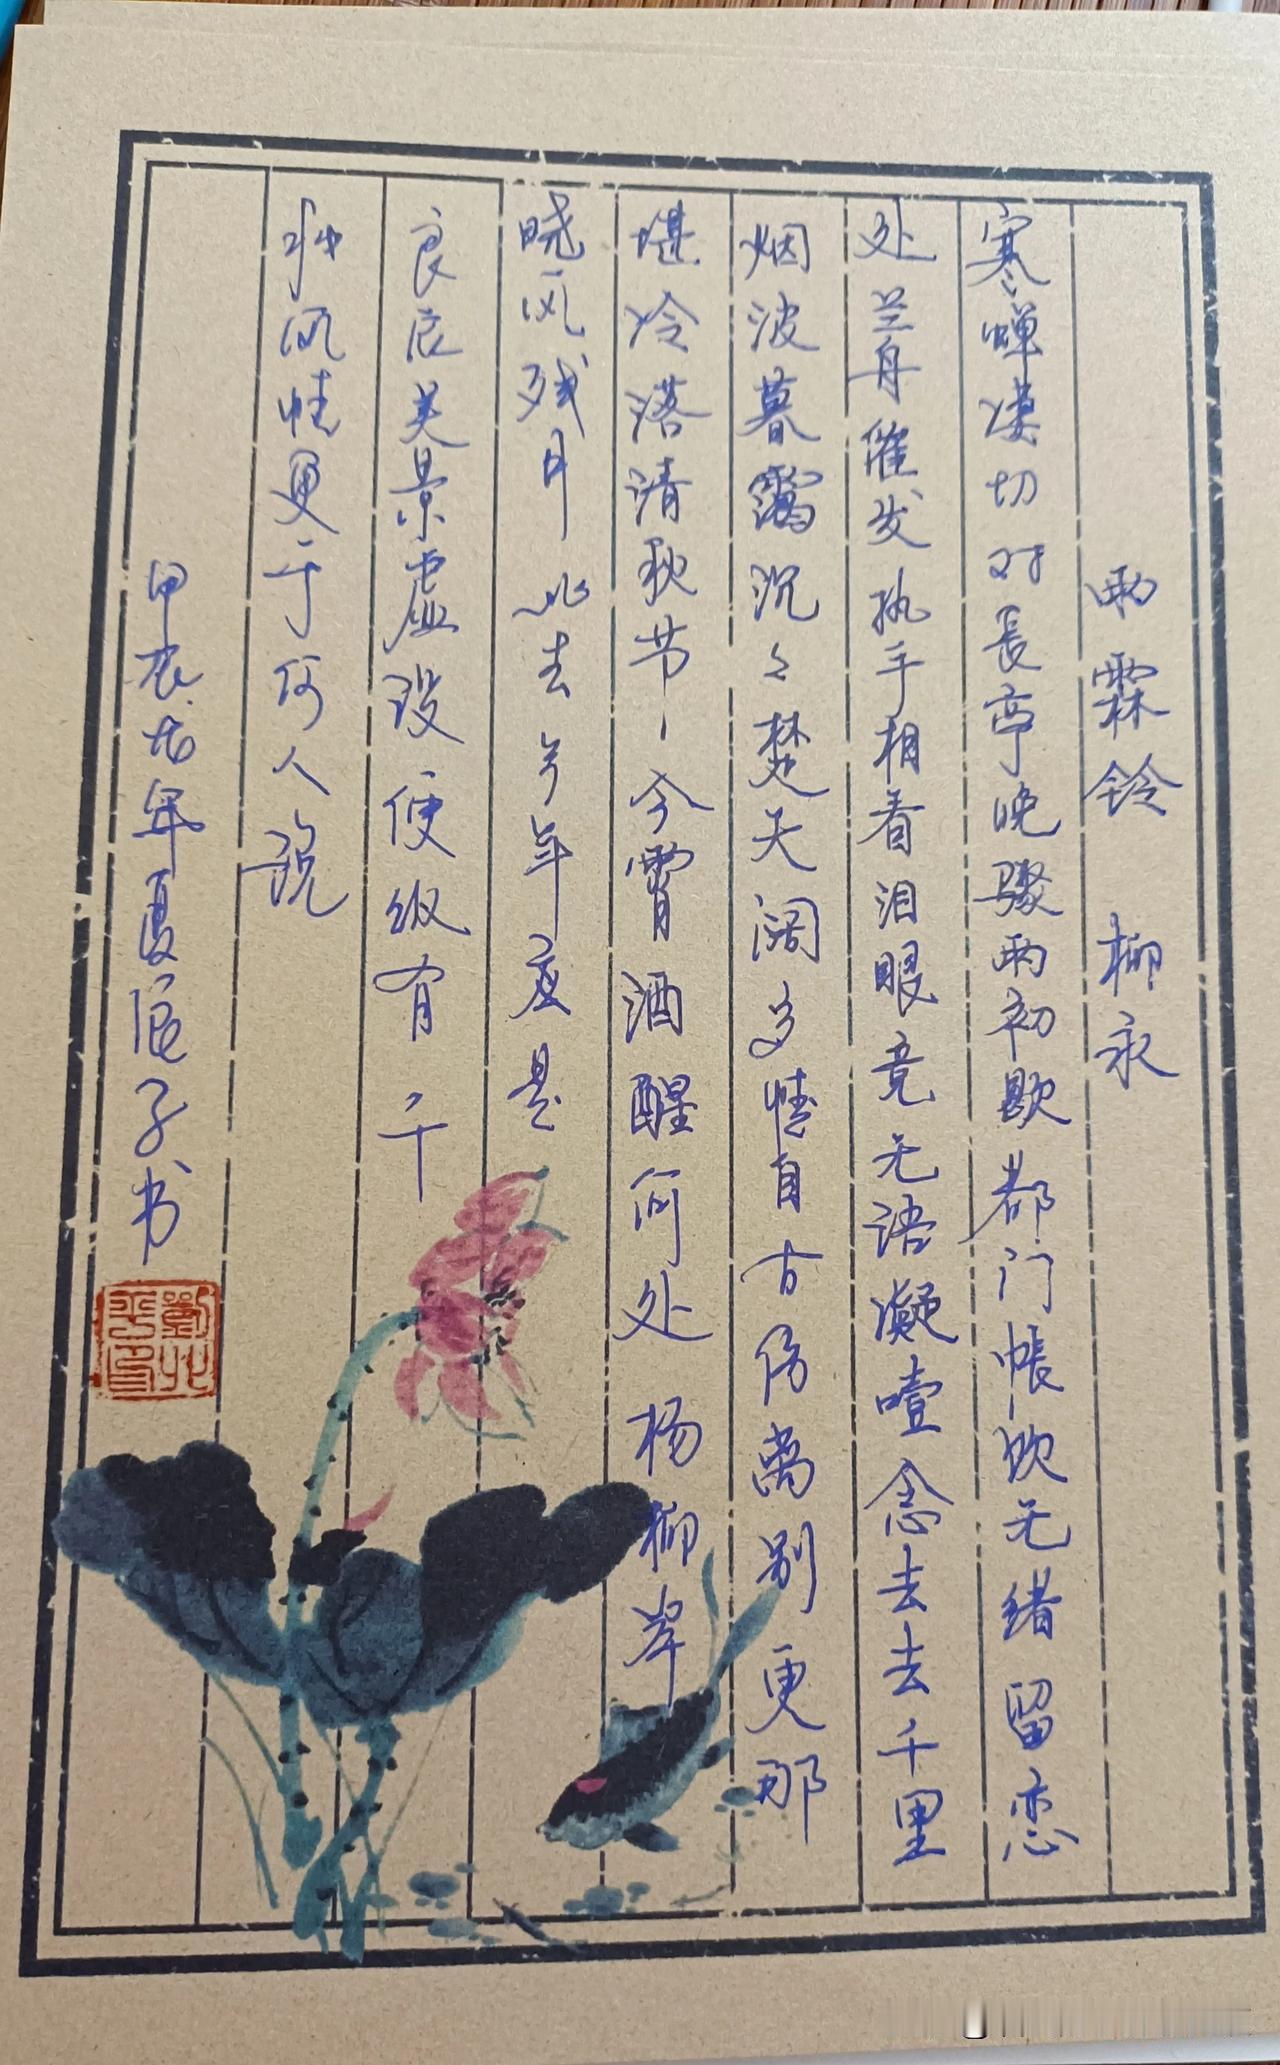 雨霖铃 柳永
寒蝉凄切对長亭晚骤雨初歇都门帐饮无绪留恋
处兰舟催发执手相看泪眼竟无语凝噎念去去千里
烟波暮霭沉々楚天阔多情自古伤离别更那
堪冷落清秋节、今宵酒醒何处杨柳岸
晓风残月此去多年应是
良辰美景虚设便纵有千
种风情更于何人说
甲辰龙年夏辰子书